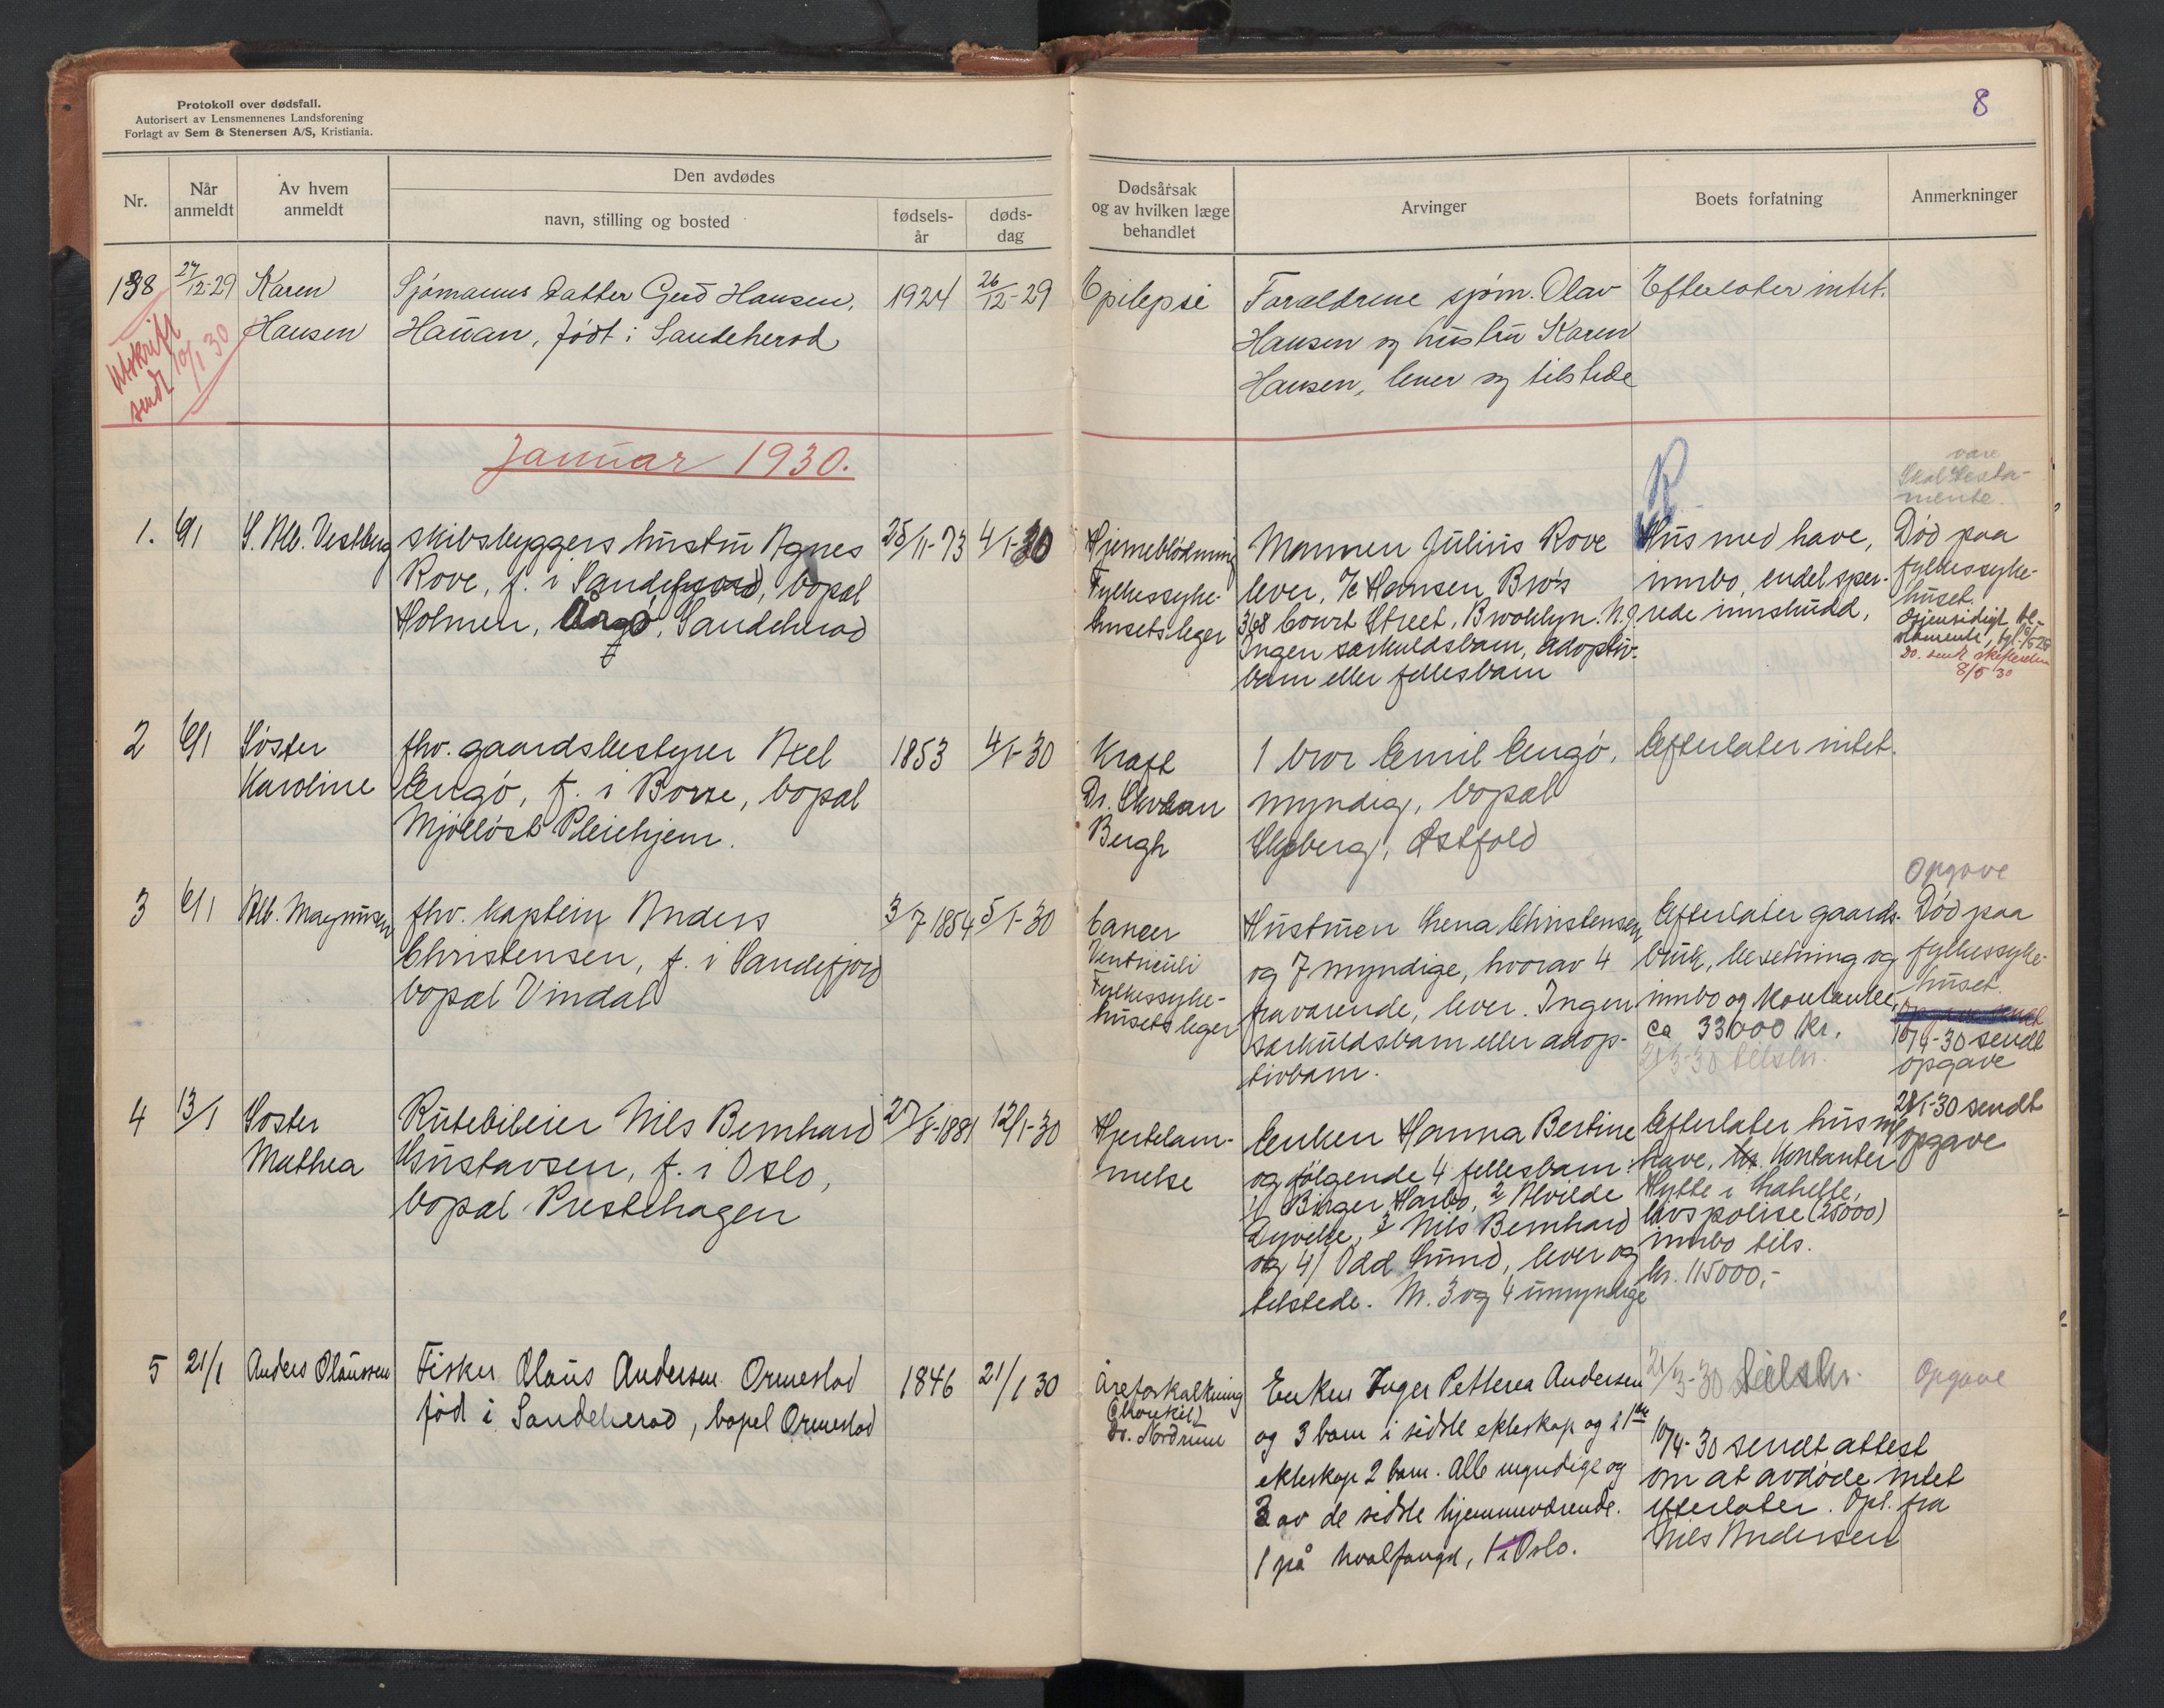 Protokoll over dødsfall.
Autorisert av Lensmennenes Landsforening
Forlagt av Sem & Stenersen A/S, Kristiania.
8
Nr.
Når anmeldt
Av hvem anmeldt
Den avdødes
navn, stilling og bosted
fødsels-år
døds-dag
Dødsårsak
og av hvilken læge
behandlet
Arvinger
Boets forfatning
Anmerkninger
138 27/12-29 Karen Hansen
Sjømanns datter Gerd Hansen,
Hauan, født i Sandeherad
1924 26/12-29
Epilepsi
Foreldrene sjøm. Olav
Hansen og hustru Karen
Hansen, lever og tilstede
Efterlater intet.
Utskrift
sendt 10/1 30
Januar 1930.
1. 6/1 S. Alb. Vestberg
skibsbyggers hustru Agnes
Rove, f. i Sandefjord, bopæl
Holmen, Sandeherad
25/11-73 4/1-30
Hjerneblødning
Fylkessyke-
husets leger
Mannen Julius Rove
lever, c/o Hansen Bro's
368 Court Street, Brooklyn. N.J
Ingen særkuldsbarn, adoptiv-
barn eller fellesbarn
Hus med have,
innbo, endel spar-
ede innskudd,
være
Skal testa-
mente.
Død paa
fylkessyke-
huset
Gjensidigt te-
stamente,
Do. sendt skifteretten
8/5 30
2 6/1 Søster Karoline
fhv. gaardsbestyrer Axel
Engø, f. i Borre, bopæl
Mjølløst Pleiehjem.
1853 4/1-30
Kraft
Dr.
Bergh
1 bror Emil Engø,
myndig, bopæl
Skjeberg, Østfold
Efterlater intet.
3 6/1 Alb. Magnusen
fhv. kaptein Anders
Christensen, f. i Sandefjord
bopæl Vindal
3/7 1854 5/1-30
Cancer
Ventriculi
Fylkessyke-
husets leger
Hustruen Lena Christensen
og 7 myndige, hvorav 4
fraværende, lever. Ingen
særkuldsbarn eller adop-
tivbarn.
Efterlater gaards-
bruk, besetning og
innbo og kontanter,
ca 33000 kr.
21/3-30 tilskr.
Opgave
Død paa
fylkessyke-
huset.
Opgave sendt
10/4-30 sendt
opgave
4 13/1 Søster Mathea
Rutebileier Nils Bernhard
Gustavsen, f. i Oslo,
bopæl Prestehagen
27/8-1881 12/1-30
Hjertelam-
melse
Enken Hanna Bertine
og følgende 4 fellesbarn:
1/ Birger Harbo, 2/ Alvilde
Dyveke, 3/ Nils Bernhard
og 4/ Odd Lund, lever og
tilstede. Nr. 3 og 4 umyndige
Efterlater hus m/
have, kontanter
Hytte i Lahelle,
livspolise (25000)
innbo tils.
kr. 115000,-
28/1-30 sendt
opgave
5 21/1 Anders Olaussen
Fisker Olaus Andersen Ormestad
fød i Sandeherad, bopel Ormestad
1846 21/1 30
Åreforkalkning
Dr. Nordrum
Enken Inger Petterea Andersen
og 3 barn i sidste ekteskap og i 1ste
ekteskap 2 barn. Alle myndige og
3 av de sidste hjemmeværende.
1 på hvalfangst, 1 i Oslo.
21/3-30 tilskr.
10/4-30 sendt attest
om at avdøde intet
efterlater. Opl. fra
Nils Andersen
Opgave